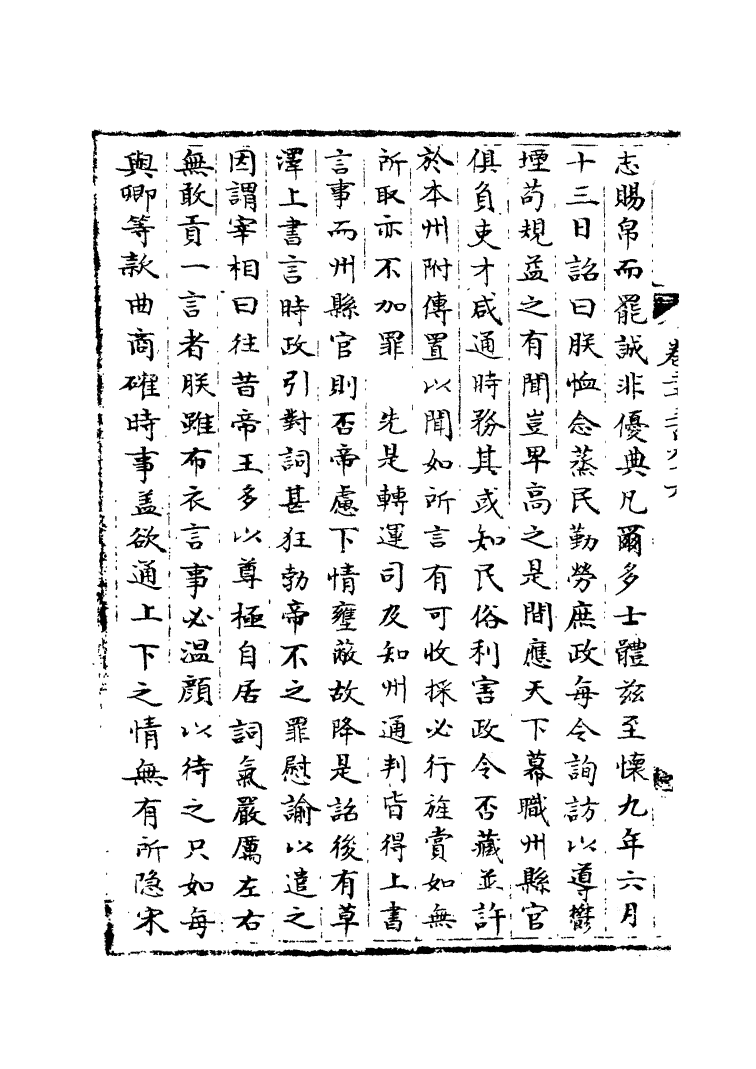 志賜帛而罷誠非優典凡爾多士體兹至懷九年六月
十三日詔曰朕恤念蒸民勤勞庶政每令詢訪以導鬱
堙苟規益之有聞豈卑高之是間應天下幕職州縣官
俱負吏才咸通時務其或知民俗利害政令否藏並許
於本州附傳置以聞如所言有可收採必行旌賞如無
所取亦不加罪　先是轉運司及知州通判皆得上書
言事而州縣官則否帝慮下情壅蔽故降是詔後有草
澤上書言時政引對詞甚狂勃帝不之罪慰諭以遣之
因謂宰相曰往昔帝王多以尊極自居詞氣嚴厲左右
無敢貢一言者朕雖布衣言事必温顔以待之只如每
與卿等款曲商確時事盖欲通上下之情無有所隐宋